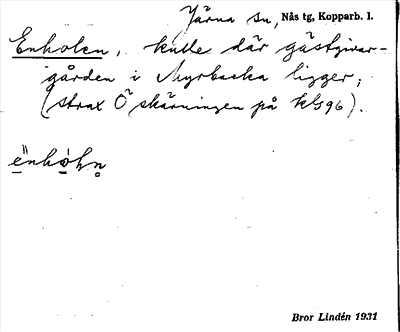 Järna sn, Nås tg, Kopparb. l.
Enholen, kulle där gästgivar-
gården i Myrbacka ligger;
(strax Ö skärningen på kbl 96).
ẹnhọln
Bror Lindén 1931